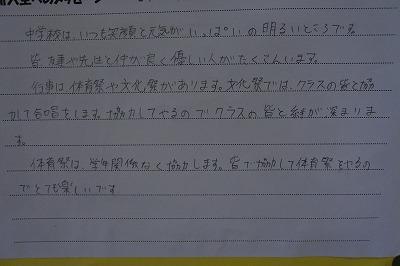 中学校は、いつも笑顔と元気がいっぱいの明るいところです。
皆 友達や先生と仲が良く優しい人がたくさんいます。
行事は、体育祭や文化祭があります。文化祭では、クラスの皆と協
力して合唱をします。協力してやるのでクラスの皆と絆が深まりま
す。
体育祭は、学年関係なく協力します。皆で協力して体育祭をやるの
でとても楽しいです